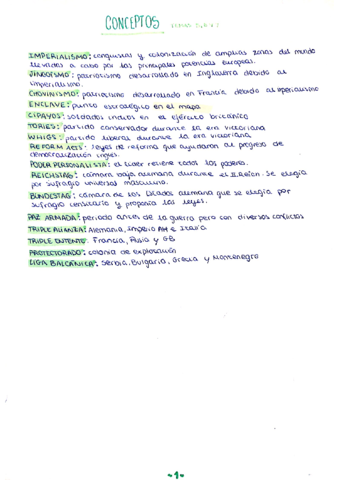 CONCEPTOS
IMPERIALISMO: conquistas y colonización de amplias zonas del mundo
llevadas a cabo por las principales potencias europeas.
JINGOÍSMO: patriotismo desarrollado en Inglaterra debido al
imperialismo.
CHOVINISMO: patriotismo desarrollado en Francia debido al imperialismo
ENCLAVE: punto estratégico en el mapa
CIPAYOS: soldados indios en el ejército británico
TORIES: partido conservador durante la era victoriana
WHIGS: partido liberal durante la era victoriana
REFORM ACTS: leyes de reforma que ayudaron al progreso de
democratización inglés.
PODER PERSONALISTA: el líder retiene todos los poderes.
REICHSTAG: cámara baja alemana durante el II Reich. Se elegía
por sufragio universal masculino.
BUNDESTAG: cámara de los Estados alemana que se elegía por
sufragio censitario y proponía las leyes.
PAZ ARMADA: periodo antes de la guerra pero con diversos conflictos
TRIPLE ALIANZA: Alemania, Imperio AH e Italia
TRIPLE ENTENTE: Francia, Rusia y GB
PROTECTORADO: colonia de explotación
LIGA BALCÁNICA: Serbia, Bulgaria, Grecia y Montenegro
-1-